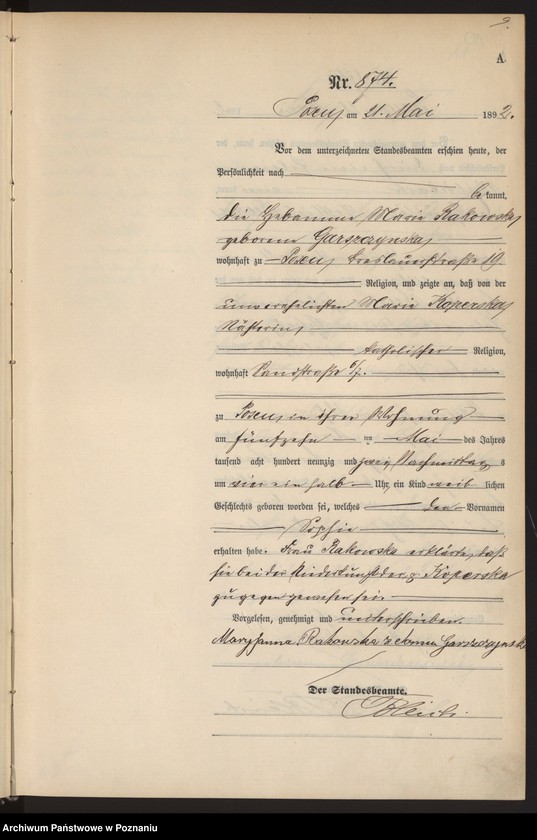 A
Nr. 874.
Posen, am 21. Mai 1892.
Vor dem unterzeichneten Standesbeamten erschien heute, der
Persönlichkeit nach
bekannt,
die Hebamme Marie Rakowska,
geborene Garszczynska,
wohnhaft zu Posen, Breslauerstraße 19
Religion, und zeigte an, daß von der
unverehelichten Marie Koperska,
Nähterin,
katholischer Religion,
wohnhaft Sandstraße
zu Posen, in ihrer Wohnung
am fünfzehn ten Mai des Jahres
tausend acht hundert neunzig und zwei, Nachmittags
um vier ein halb Uhr, ein Kind weib lichen
Geschlechts geboren worden sei, welches den Vornamen
Sophie
erhalten habe. Frau Rakowska erklärte, daß
sie bei der Niederkunft der p. Koperska
zugegen gewesen sei.
Vorgelesen, genehmigt und unterschrieben.
Maryjanna Rakowska z domu Garszczynska
Der Standesbeamte.
Archiwum Państwowe w Poznaniu